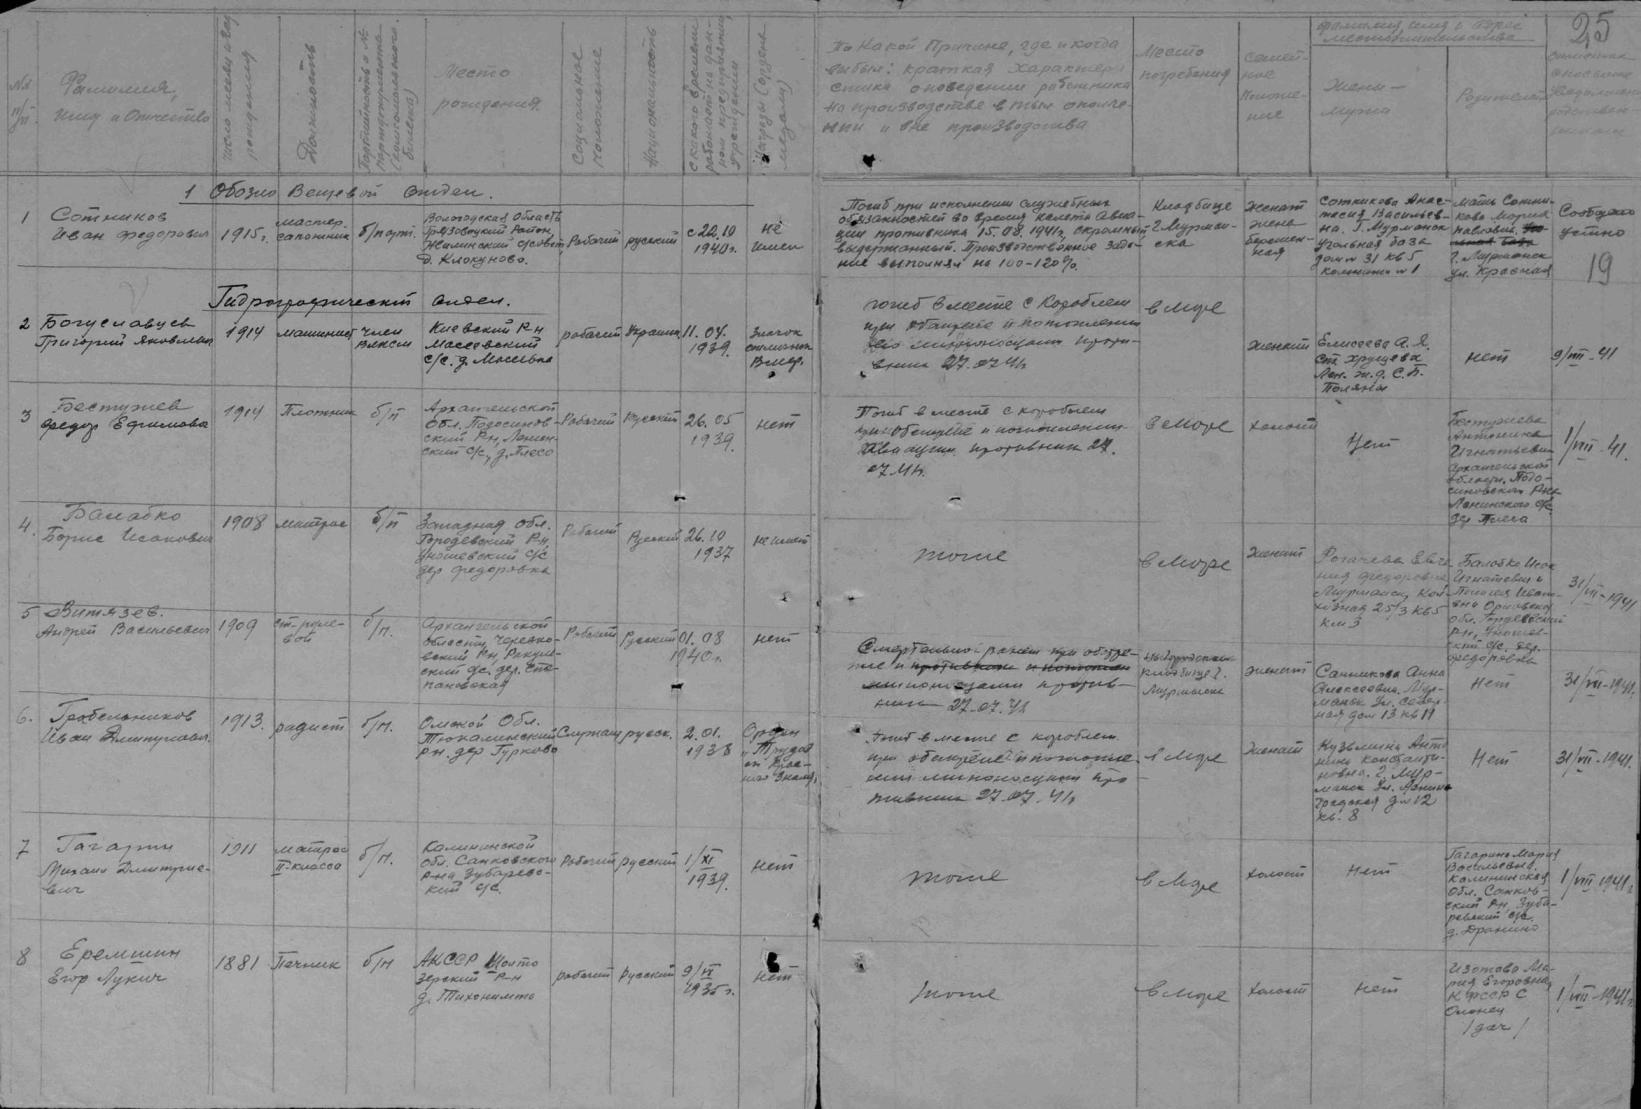 25
№№ п/п.
Фамилия,
имя и Отчество
число месяц и год
рождения
Должность
Партийность и №
партдокумента
(комсомольского
билета)
Место
рождения
Социальное
положение
Национальность
с какого времени
работает на дан-
ном предприятии
учреждении
Награды (ордена
медали)
По Какой Причине, где и когда
выбыл: краткая Характери
стика о поведении работника
на производстве в тыл ополче-
нии и вне производства
Место
погребения
Семей-
ное
положе-
ние
Фамилия, имя и адрес
местожительства
Жены —
мужа
Родителей
1 Обозно Вещевой отдел.
1
Сотников
Иван Федорович
1915 г.
мастер.
сапожник
б/парт.
Вологодская Область
Грязовецкий Район,
Д. Клокуново.
Рабочий
русский
с 22.10
1940 г.
не
имел
Погиб при исполнении служебных
обязанностей во время налета Авиа-
ции противника 15.08.1941 г. скромный
выдержанный. Производственное зада-
ние выполнял на 100-120%.
Кладбище
г. Мурман-
ска
Женат
жена
беремен-
ная
Сотникова Анас-
тасия Васильев-
на. г. Мурманск
Угольная база
дом № 31 кв 5
комната № 1
Мать Сотни-
кова Мария
Павловна.
г. Мурманск
ул. Красная
Сообщено
устно
19
Гидрографический отдел.
2
Богуславцев
Григорий Яковлевич
1914
машинист
член
ВЛКСМ
Киевский р-н
Масеевский
с/с. д.
рабочий
Украинец
11.04.
1939.
Значок
отличник
погиб вместе с Кораблем
при обстреле и потоплении
его миноносцами проти-
вника 27.07.41 г.
в море
Женат
Елисеева А. Я.
ст Хрущева
Лен. ж.д. С.П.
Поляны
Нет
9/VIII-41
3
Бестужев
Федор Ефимович
1914
Плотник
б/п
Архангельской
Обл. Подосинов-
ский Р-н, Ленин-
ский с/с, д. Плесо
Рабочий
Русский
26.05
1939.
нет
Погиб вместе с кораблем
при обстреле и потоплении
противник 27.
07.41 г.
в море
холост
Нет
Бестужева
Антонина
Игнатьевна
Архангельской
области. Подо-
синовского Р-на
Ленинского с/с
дер Плеса
1/VIII-41.
4.
Балабко
Борис Исакович
1908
матрос
б/п
Западная Обл.
Гордевский Р-н
Уношевский с/с
дер Федоровка
Рабочий
Русский
26.10
1937
не имеет
тоже
в море
женат
Рогачева Евге
ния Федоровна
Мурманск, Кол-
хозная 25/3 кв 5
ком 3
Балабко Исак
Игнатьевич и
Орловской
Обл. Гордеевский
Р-н, Уношев-
ский с/с. дер.
Федоровка
31/VII-1941
5
Витязев.
Андрей Васильевич
1909
ст. руле-
вой
б/п.
Архангельской
области, Черевко-
вский Р-н, Ракуль-
ский с/с. дер. Сте-
пановская
Рабочий
Русский
01.08
1940 г.
нет
Смертельно ранен при обстре-
ле и
миноносцами против-
ника 27.07.41
на городском
кладбище г.
Мурманска
женат
Санникова Анна
Алексеевна. Мур-
манск Ул. Север-
ная дом 13 кв 19
Нет
31/VII-1941.
6.
Гребельников
Иван Дмитриевич
1913.
радист
б/п.
Омской Обл.
Тюкалинский
р-н. дер Гурково
Служащ
русск.
2.01.
1938
Орден
"Трудов
ого Крас-
ного Знам"
Погиб вместе с кораблем
при обстреле и потопле-
нии миноносцами про-
тивника 27.07.41 г.
в море
женат
Кузьмина Анто
нина Константи-
новна. г. Мур-
манск Ул. Ленин-
градская д № 12
кв. 8
Нет
31/VII-1941.
7
Гагарин
Михаил Дмитрие-
вич
1911
матрос
II класса
б/п.
Калининской
обл. Санковского
р-на Зубарев-
ский с/с.
Рабочий
русский
1/XI
1939.
нет
тоже
в море
холост
Нет
Гагарина Мария
Васильевна.
Калининская
Обл. Санков-
ский Р-н, Зуба-
ревский с/с.
д. Дранино
1/VIII-1941 г.
8
Еремшин
Егор Лукич
1881
Печник
б/п
АКССР Шолто
зерский Р-н
д. Тихоништо
рабочий
русский
9/VI
1935 г.
нет
тоже
в море
холост
нет
Изотова Ма-
рия Егоровна,
КФССР С
Олонец
/дочь/
1/VIII-1941 г.